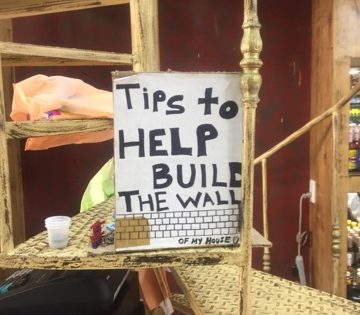 Tips to
HELP
BUILD
THE WALL
OF MY HOUSE